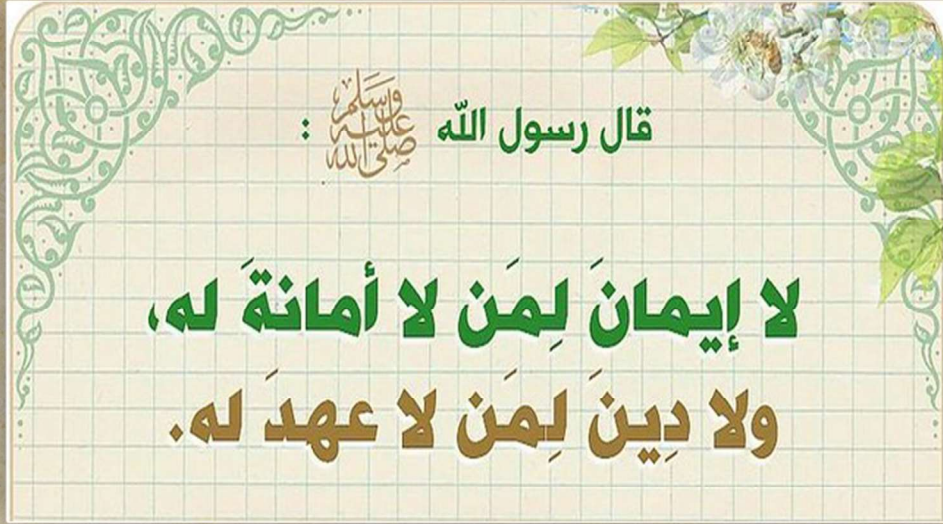 قال رسول اللّه صلى الله عليه وسلم :
لا إيمانَ لِمَن لا أمانةَ له،
ولا دِينَ لِمَن لا عهدَ له.